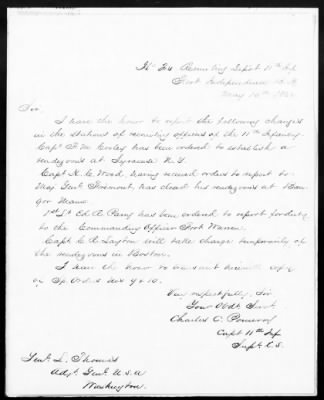 Hd Qrs Recruiting Depot 11th Inf
Fort Independence B. H.
May 10th 1862
Sir
I have the honor to report the following changes
in the stations of recruiting officers of the 11th Infantry.
Capt F. M. Cooley has been ordered to establish a
rendezvous at Syracuse N. Y.
Capt H. C. Wood having received orders to report to
Maj Genl Fremont has closed his rendezvous at Ban-
gor Maine
1st Lt Ed. R. Parry has been ordered to report for duty
to the Commanding Officer Fort Warren.
Capt C. A. Layton will take charge temporarily of
the rendezvous in Boston.
I have the honor to transmit herewith copy
of Sp. Orders Nos 9 & 10.
Very respectfully, Sir
Your Obdt Servt
Charles C. Pomeroy
Capt 11th Inf
Supt R.S.
Genl L. Thomas
Adjt Genl U.S.A
Washington.